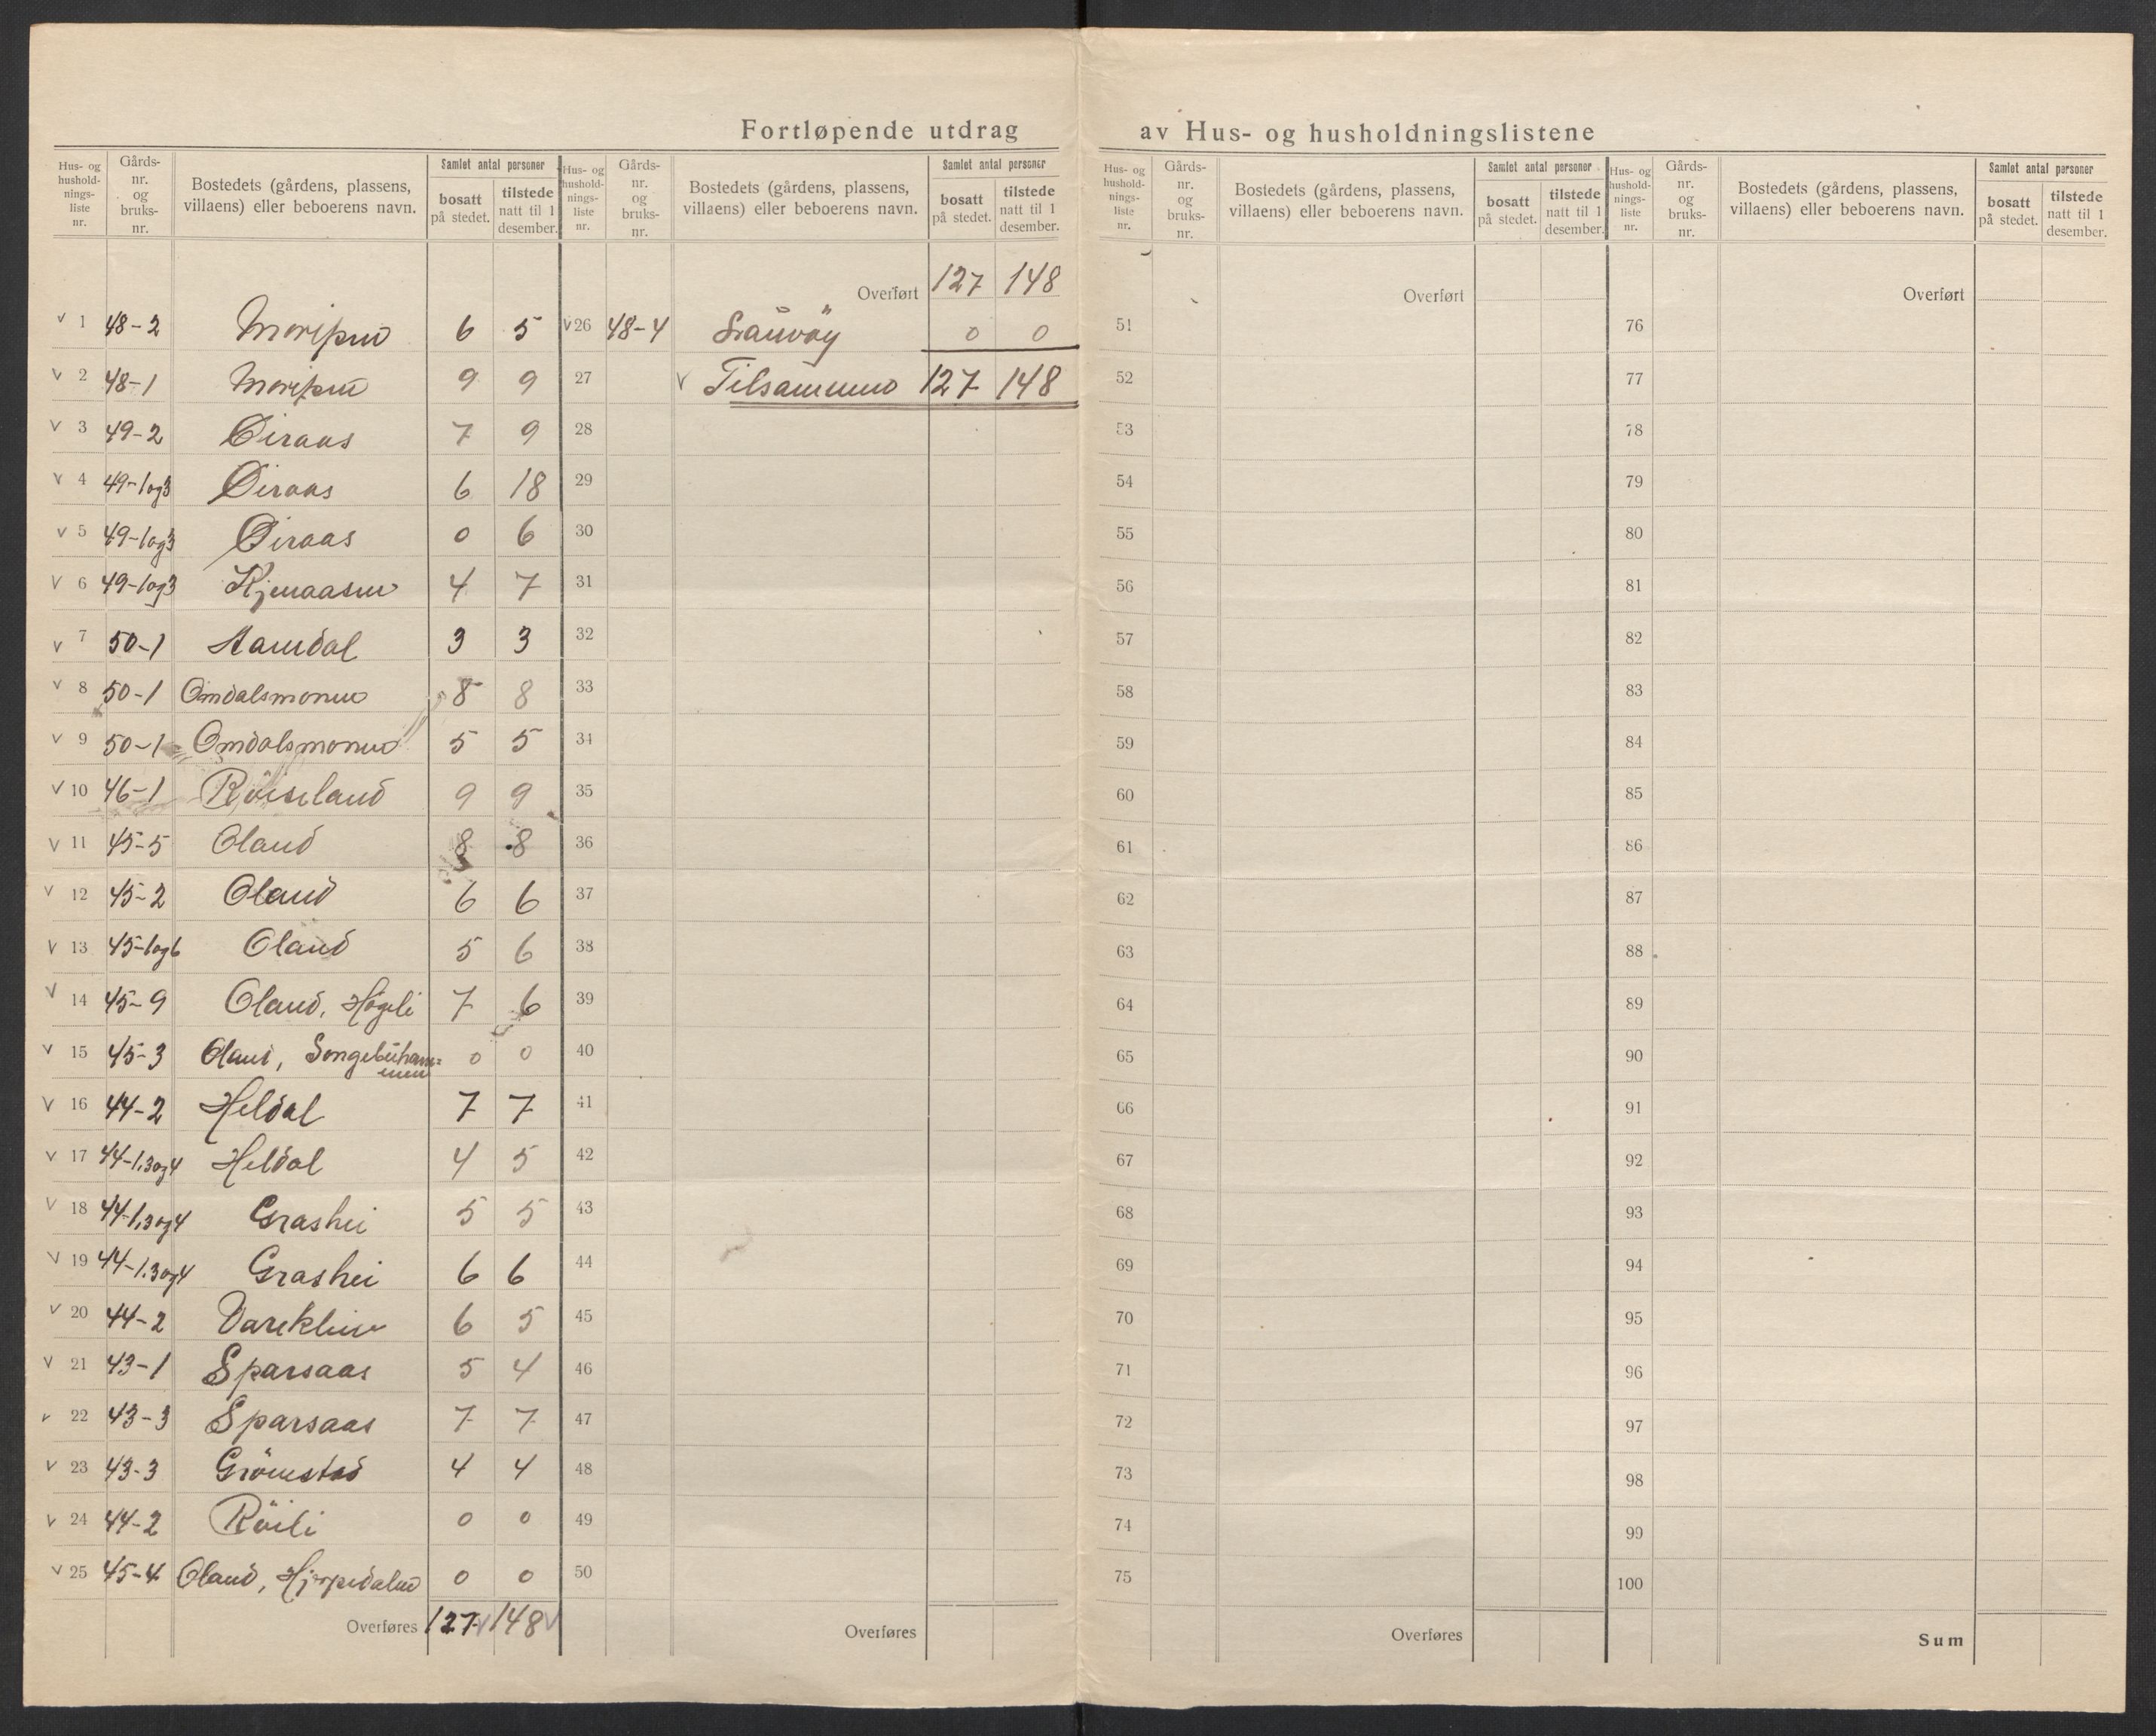 Fortløpende utdrag av Hus- og husholdningslistene
Hus- og husholdningsliste nr. Gårds-nr. og bruks-nr. Bostedets (gårdens, plassens, villaens) eller beboerens navn. Samlet antal personer bosatt på stedet. tilstede natt til 1 desember.
Hus- og husholdningsliste nr. Gårds-nr. og bruks-nr. Bostedets (gårdens, plassens, villaens) eller beboerens navn. Samlet antal personer bosatt på stedet. tilstede natt til 1 desember.
Hus- og husholdningsliste nr. Gårds-nr. og bruks-nr. Bostedets (gårdens, plassens, villaens) eller beboerens navn. Samlet antal personer bosatt på stedet. tilstede natt til 1 desember.
Hus- og husholdningsliste nr. Gårds-nr. og bruks-nr. Bostedets (gårdens, plassens, villaens) eller beboerens navn. Samlet antal personer bosatt på stedet. tilstede natt til 1 desember.
v 1 48-2 6 5
v 2 48-1 9 9
v 3 49-2 Øiraas 7 9
v 4 49-1og3 Øiraas 6 18
v 5 49-1og3 Øiraas 0 6
v 6 49-1og3 4 7
v 7 50-1 Aamdal 3 3
v 8 50-1 Omdalsmonen 8 8
v 9 50-1 Omdalsmonen 5 5
v 10 46-1 Röiseland 9 9
v 11 45-5 Oland 8 8
v 12 45-2 Oland 6 6
v 13 45-1og6 Oland 5 6
v 14 45-9 Oland, Högeli 7 6
v 15 45-3 Oland, 0 0
v 16 44-2 Heldal 7 7
v 17 44-1,3og4 Heldal 4 5
v 18 44-1,3og4 Grashei 5 5
v 19 44-1,3og4 Grashei 6 6
v 20 44-2 6 5
v 21 43-1 Sparsaas 5 4
v 22 43-3 Sparsaas 7 7
v 23 43-3 4 4
v 24 44-2 Röili 0 0
v 25 45-4 Oland, Hjerpedalen 0 0
Overføres 127 v 148 v
Overført 127 148
v 26 48-4 0 0
27 v Tilsammen 127 148
28
29
30
31
32
33
34
35
36
37
38
39
40
41
42
43
44
45
46
47
48
49
50
Overføres
Overført
51
52
53
54
55
56
57
58
59
60
61
62
63
64
65
66
67
68
69
70
71
72
73
74
75
Overføres
Overført
76
77
78
79
80
81
82
83
84
85
86
87
88
89
90
91
92
93
94
95
96
97
98
99
100
Sum